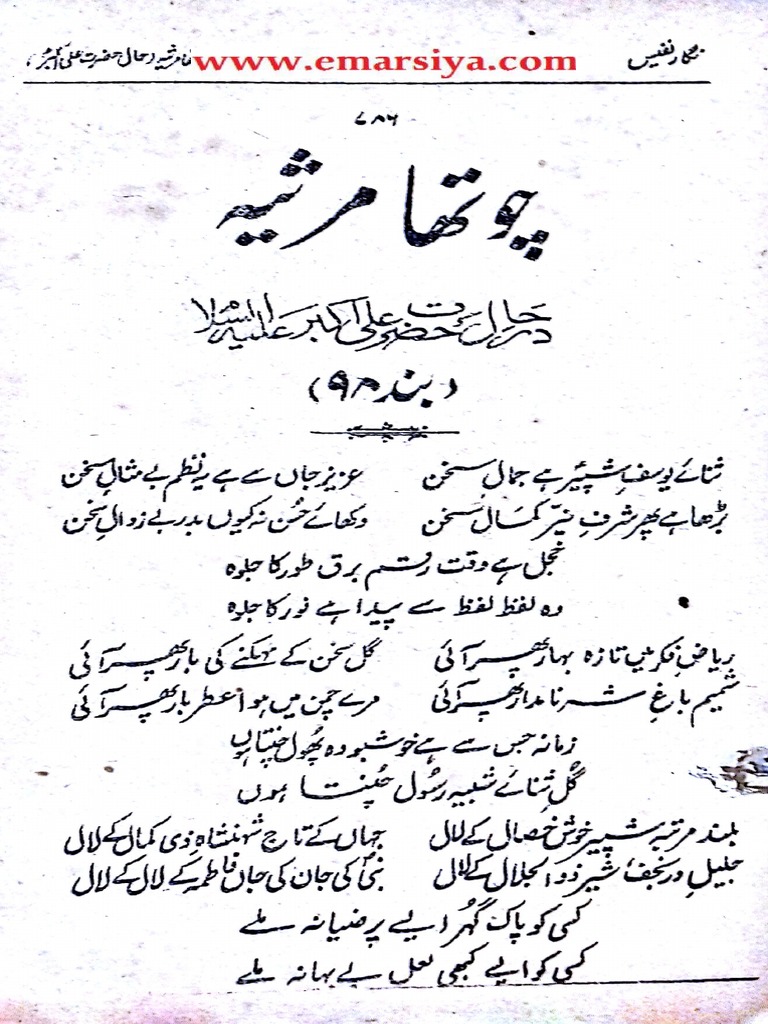 نگار نفیس www.emarsiya.com مرثیہ در حال حضرت علی اکبرؑ
۷۸۶
چوتھا مرثیہ
درحال حضرت علی اکبر علیہ السلام
(بند ۹۸)
ثنائے یوسفِ شبیرؑ ہے جمالِ سخن عزیز جاں سے ہے یہ نظم بے مثالِ سخن
بڑھا ہے پھر شرفِ نیّرِ کمالِ سخن دکھائے حُسن نہ کیوں بدر بے زوالِ سخن
خجل ہے وقت رقم برق طور کا جلوہ
وہ لفظ لفظ سے پیدا ہے نور کا جلوہ
ریاضِ فکر میں تازہ بہار پھر آئی گل سخن کے مہکنے کی بار پھر آئی
شمیم باغِ شہ نامدار پھر آئی مرے چمن میں ہوا عطر بار پھر آئی
زمانہ جس سے ہے خوشبو وہ پھول چنتا ہوں
گُلِ ثنائے شبیہِ رسُول چُنتا ہوں
بلند مرتبہ شبیر خوش خصال کے لال جہاں کے تاج شہنشاہِ ذی کمال کے لال
جلیل در نجف شیر ذوالجلال کے لال نبیؐ کی جان کی جاں فاطمہؑ کے لال کے لال
کسی کو پاک گہُر ایسے پر ضیا نہ ملے
کسی کو ایسے کبھی لعل بے بہا نہ ملے